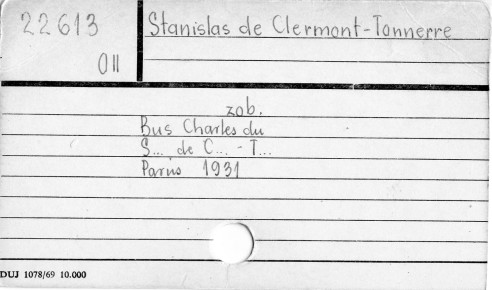 22613
Stanislas de Clermont-Tonnerre
OII
zob.
Bus Charles du
S... de C... - T...
Parus 1931
DUJ 1078/69 10.000